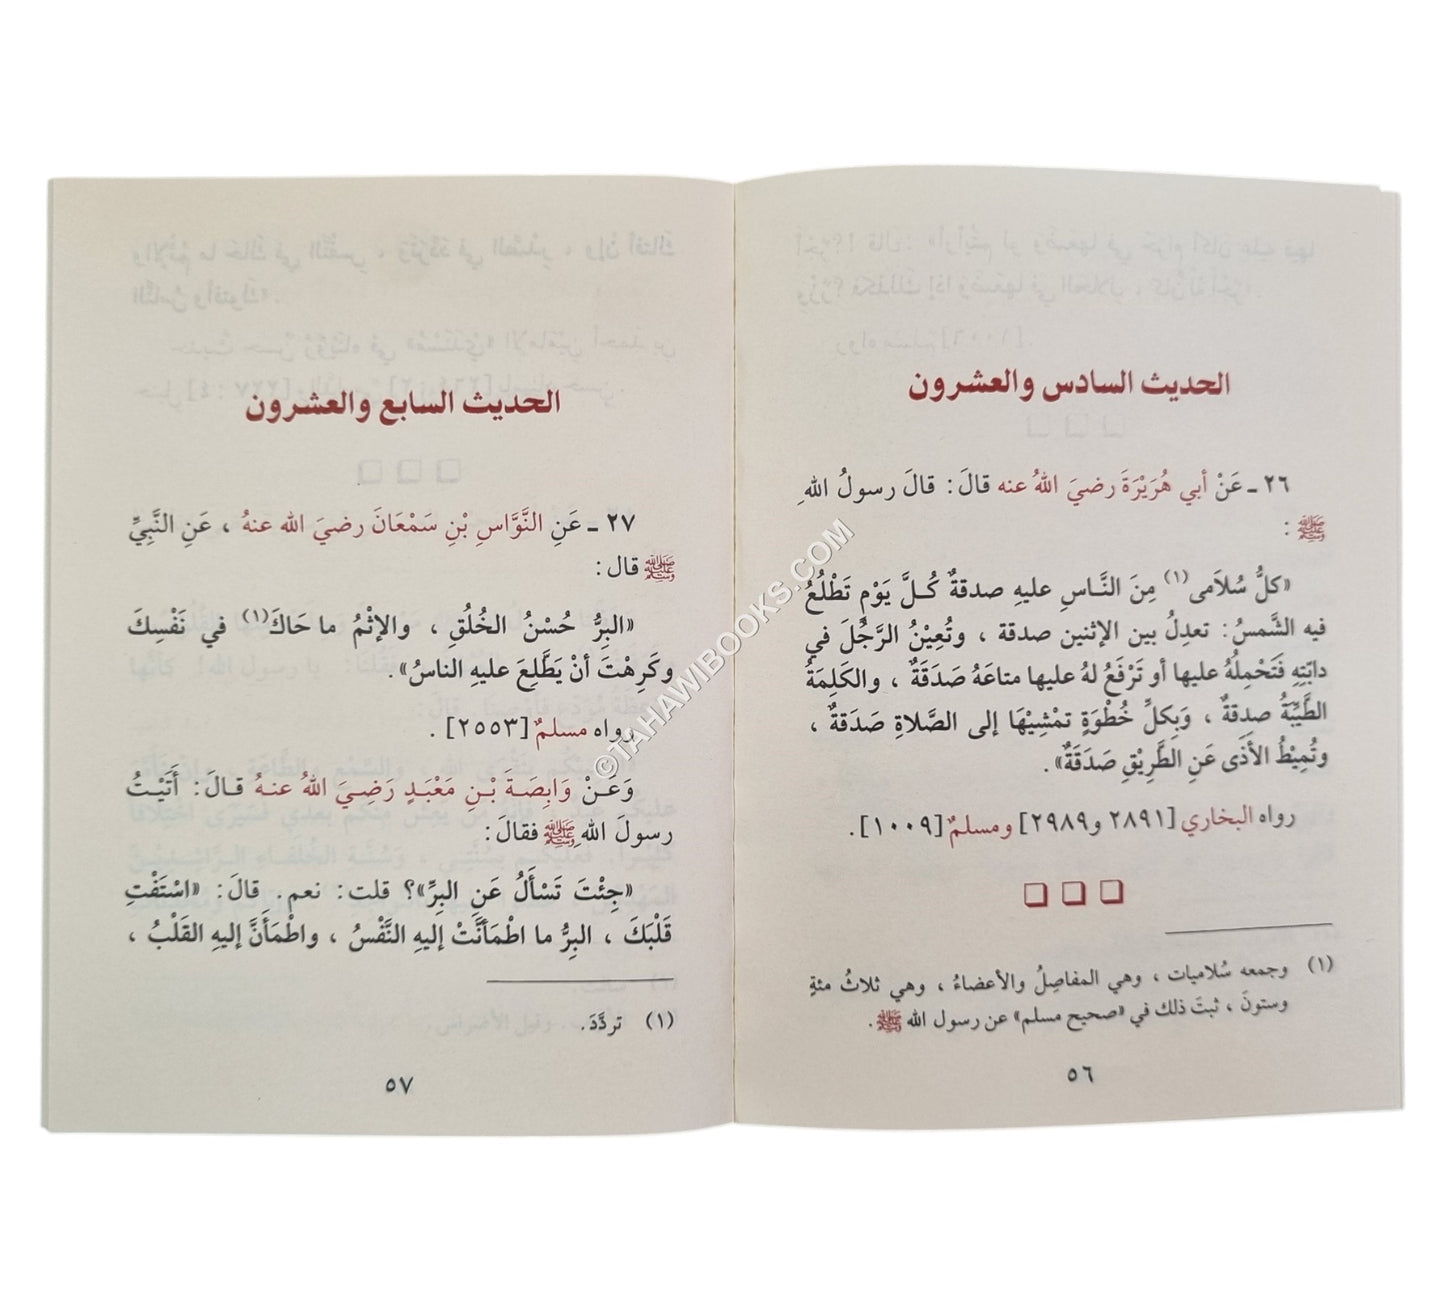 الحديث السادس والعشرون
٢٦ ـ عَنْ أبي هُرَيْرَةَ رضيَ اللهُ عنه قالَ: قالَ رسولُ اللهِ
ﷺ :
«كلُّ سُلاَمى(١) مِنَ النَّاسِ عليهِ صدقةٌ كُلَّ يَوْمٍ تَطْلُعُ
فيه الشَّمسُ: تعدِلُ بين الإثنين صدقة ، وتُعِيْنُ الرَّجُلَ في
دابّتِهِ فَتَحْمِلُهُ عليها أو تَرْفَعُ لهُ عليها متاعَهُ صَدَقَةٌ ، والكَلِمَةُ
الطَّيِّبَةُ صدِقةٌ ، وَبِكلِّ خُطْوَةٍ تمْشِيْهَا إلى الصَّلاةِ صَدَقةٌ ،
وتُمِيْطُ الأذَى عَنِ الطَّرِيْقِ صَدَقَةٌ».
رواه البخاري [٢٨٩١ و٢٩٨٩] ومسلمٌ [١٠٠٩].
(١) وجمعه سُلاميات ، وهي المفاصِلُ والأعضاءُ ، وهي ثلاثُ مئةٍ
وستونَ ، ثبتَ ذلك في «صحيح مسلم» عن رسول الله ﷺ .
٥٦
الحديث السابع والعشرون
٢٧ ـ عَنِ النَّوَّاسِ بْنِ سَمْعَانَ رضيَ الله عنهُ ، عَنِ النَّبِيِّ
ﷺ قال:
«البِرُّ حُسْنُ الخُلُقِ ، والإثْمُ ما حَاكَ(١) في نَفْسِكَ
وكَرِهْتَ أنْ يَطَّلِعَ عليهِ الناسُ».
رواه مسلمٌ [٢٥٥٣] .
وَعَنْ وَابِصَةَ بْنِ مَعْبَدٍ رَضِيَ اللهُ عنهُ قالَ: أَتَيْتُ
رسولَ اللهِ ﷺ فقالَ:
«جِئْتَ تَسْأَلُ عَنِ البِرِّ»؟ قلت: نعم. قالَ: «اسْتَفْتِ
قَلْبَكَ ، البِرُّ ما اطْمَأنَّتْ إليهِ النَّفْسُ ، واطْمَأنَّ إليهِ القَلْبُ ،
(١) تردَّدَ.
٥٧
©TAHAWIBOOKS.COM